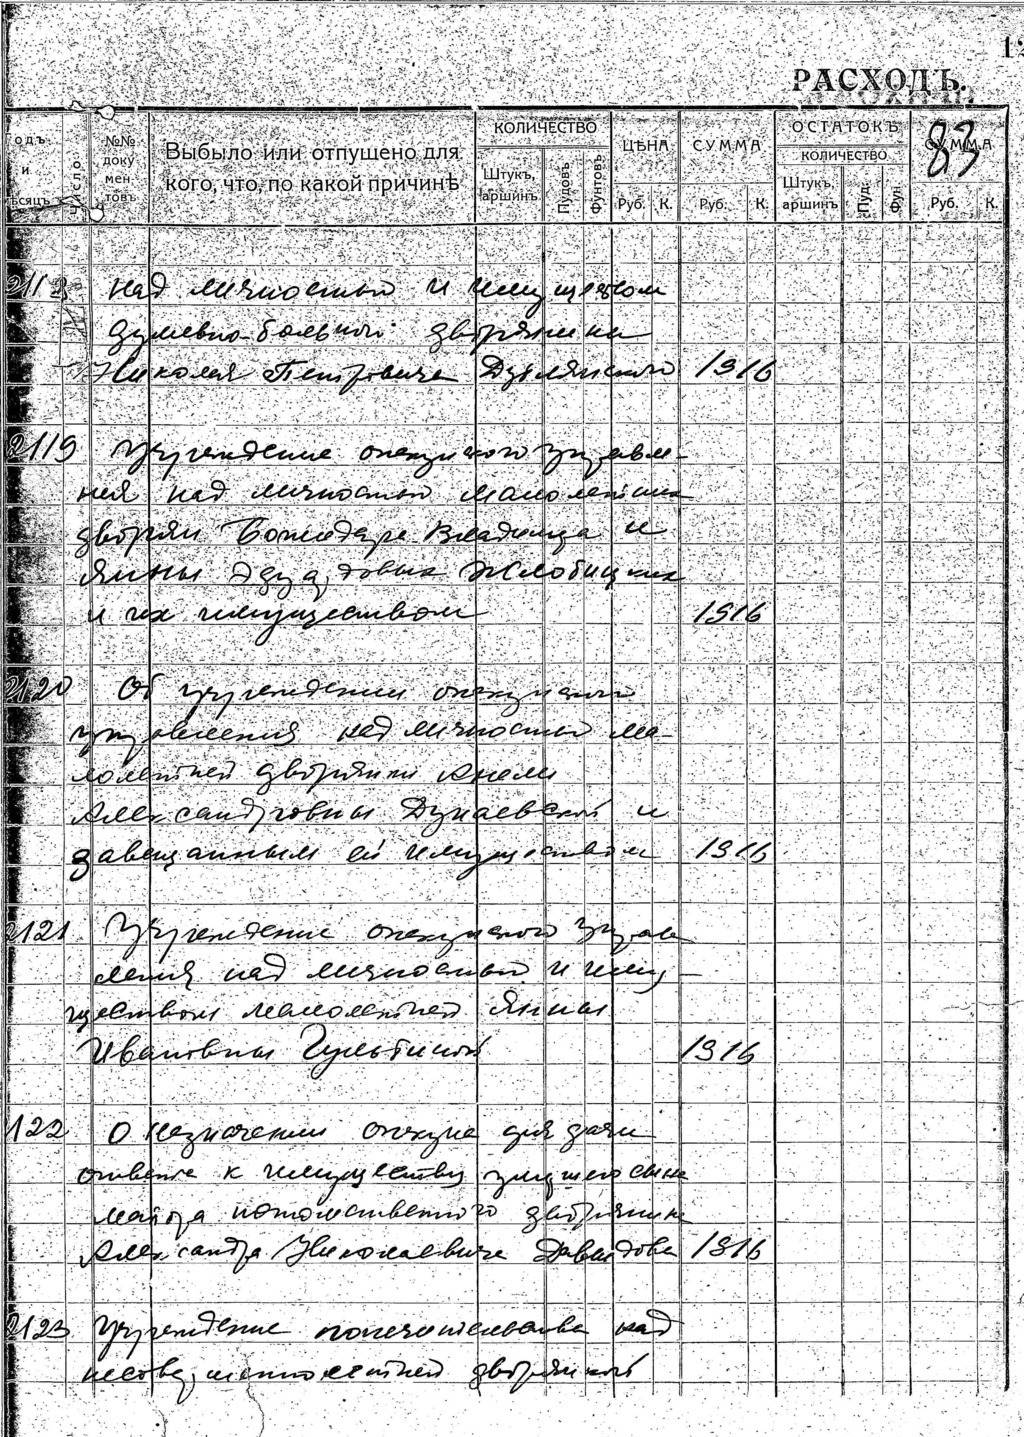 РАСХОДЪ.
83
№№ доку мен товъ
Число
Выбыло или отпущено для кого, что, по какой причинѣ
КОЛИЧЕСТВО
Штукъ, аршинъ
Пудовъ
Фунтовъ
ЦѢНА
Руб. К.
СУММА
Руб. К.
ОСТАТОКЪ
КОЛИЧЕСТВО
Штукъ, аршинъ
Пуд.
Фун.
СУММА
Руб. К.
над личностью и имуществом
душевно-больной дворянина
Николая Петровича 1916
2119 Учреждение опекунского управле-
ния над личностью малолетних
дворян Божидара Владимира и
Янины Эдуардовых Жлобицких
и их имуществом 1916
2120 Об учреждении опекунского
управления над личностью ма-
лолетней дворянки Анели
Александровны Дунаевской и
завещанным ей имуществом 1916
2121 Учреждение опекунского управ
ления над личностью и иму-
ществом малолетней Янины
Ивановны 1916
122 О назначении опекуна для дачи
ответа к имуществу умершего сына
майора потомственного дворянина
Александра Николаевича Давыдова 1916
2123 Учреждение попечительства над
несовершеннолетней дворянкой